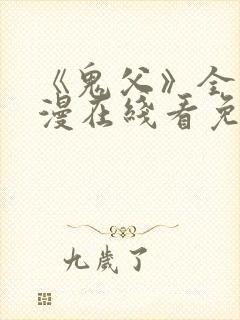 《鬼父》全
漫在线看免
九歲了